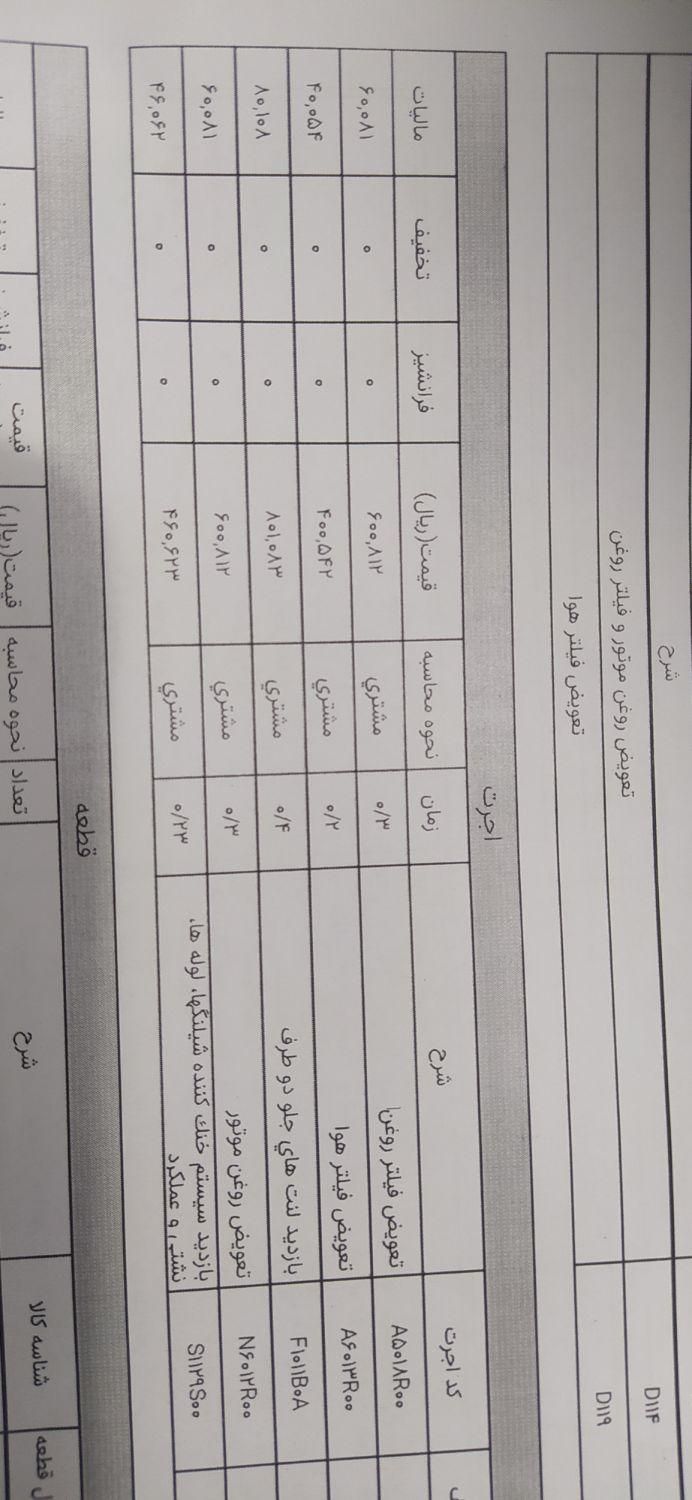 شرح
D۱۱۴
تعویض روغن موتور و فیلتر روغن
D۱۱۹
تعویض فیلتر هوا
اجرت
کد اجرت شرح زمان نحوه محاسبه قیمت(ریال) فرانشیز تخفیف مالیات
A۵۰۱۸R۰۰ تعویض فیلتر روغن ۰/۳ مشتري ۶۰۰,۸۱۲ ۰ ۰ ۶۰,۰۸۱
A۶۰۱۳R۰۰ تعویض فیلتر هوا ۰/۲ مشتري ۴۰۰,۵۴۲ ۰ ۰ ۴۰,۰۵۴
F۱۰۱۱B۰A بازدید لنت هاي جلو دو طرف ۰/۴ مشتري ۸۰۱,۰۸۳ ۰ ۰ ۸۰,۱۰۸
N۶۰۱۲R۰۰ تعویض روغن موتور ۰/۳ مشتري ۶۰۰,۸۱۲ ۰ ۰ ۶۰,۰۸۱
S۱۱۲۹S۰۰ بازدید سیستم خنك کننده شیلنگها، لوله ها، ۰/۲۳ مشتري ۴۶۰,۶۲۳ ۰ ۰ ۴۶,۰۶۲
نشتی و عملکرد
قطعه
قطعه شناسه کالا شرح تعداد نحوه محاسبه قیمت(ریال) قیمت